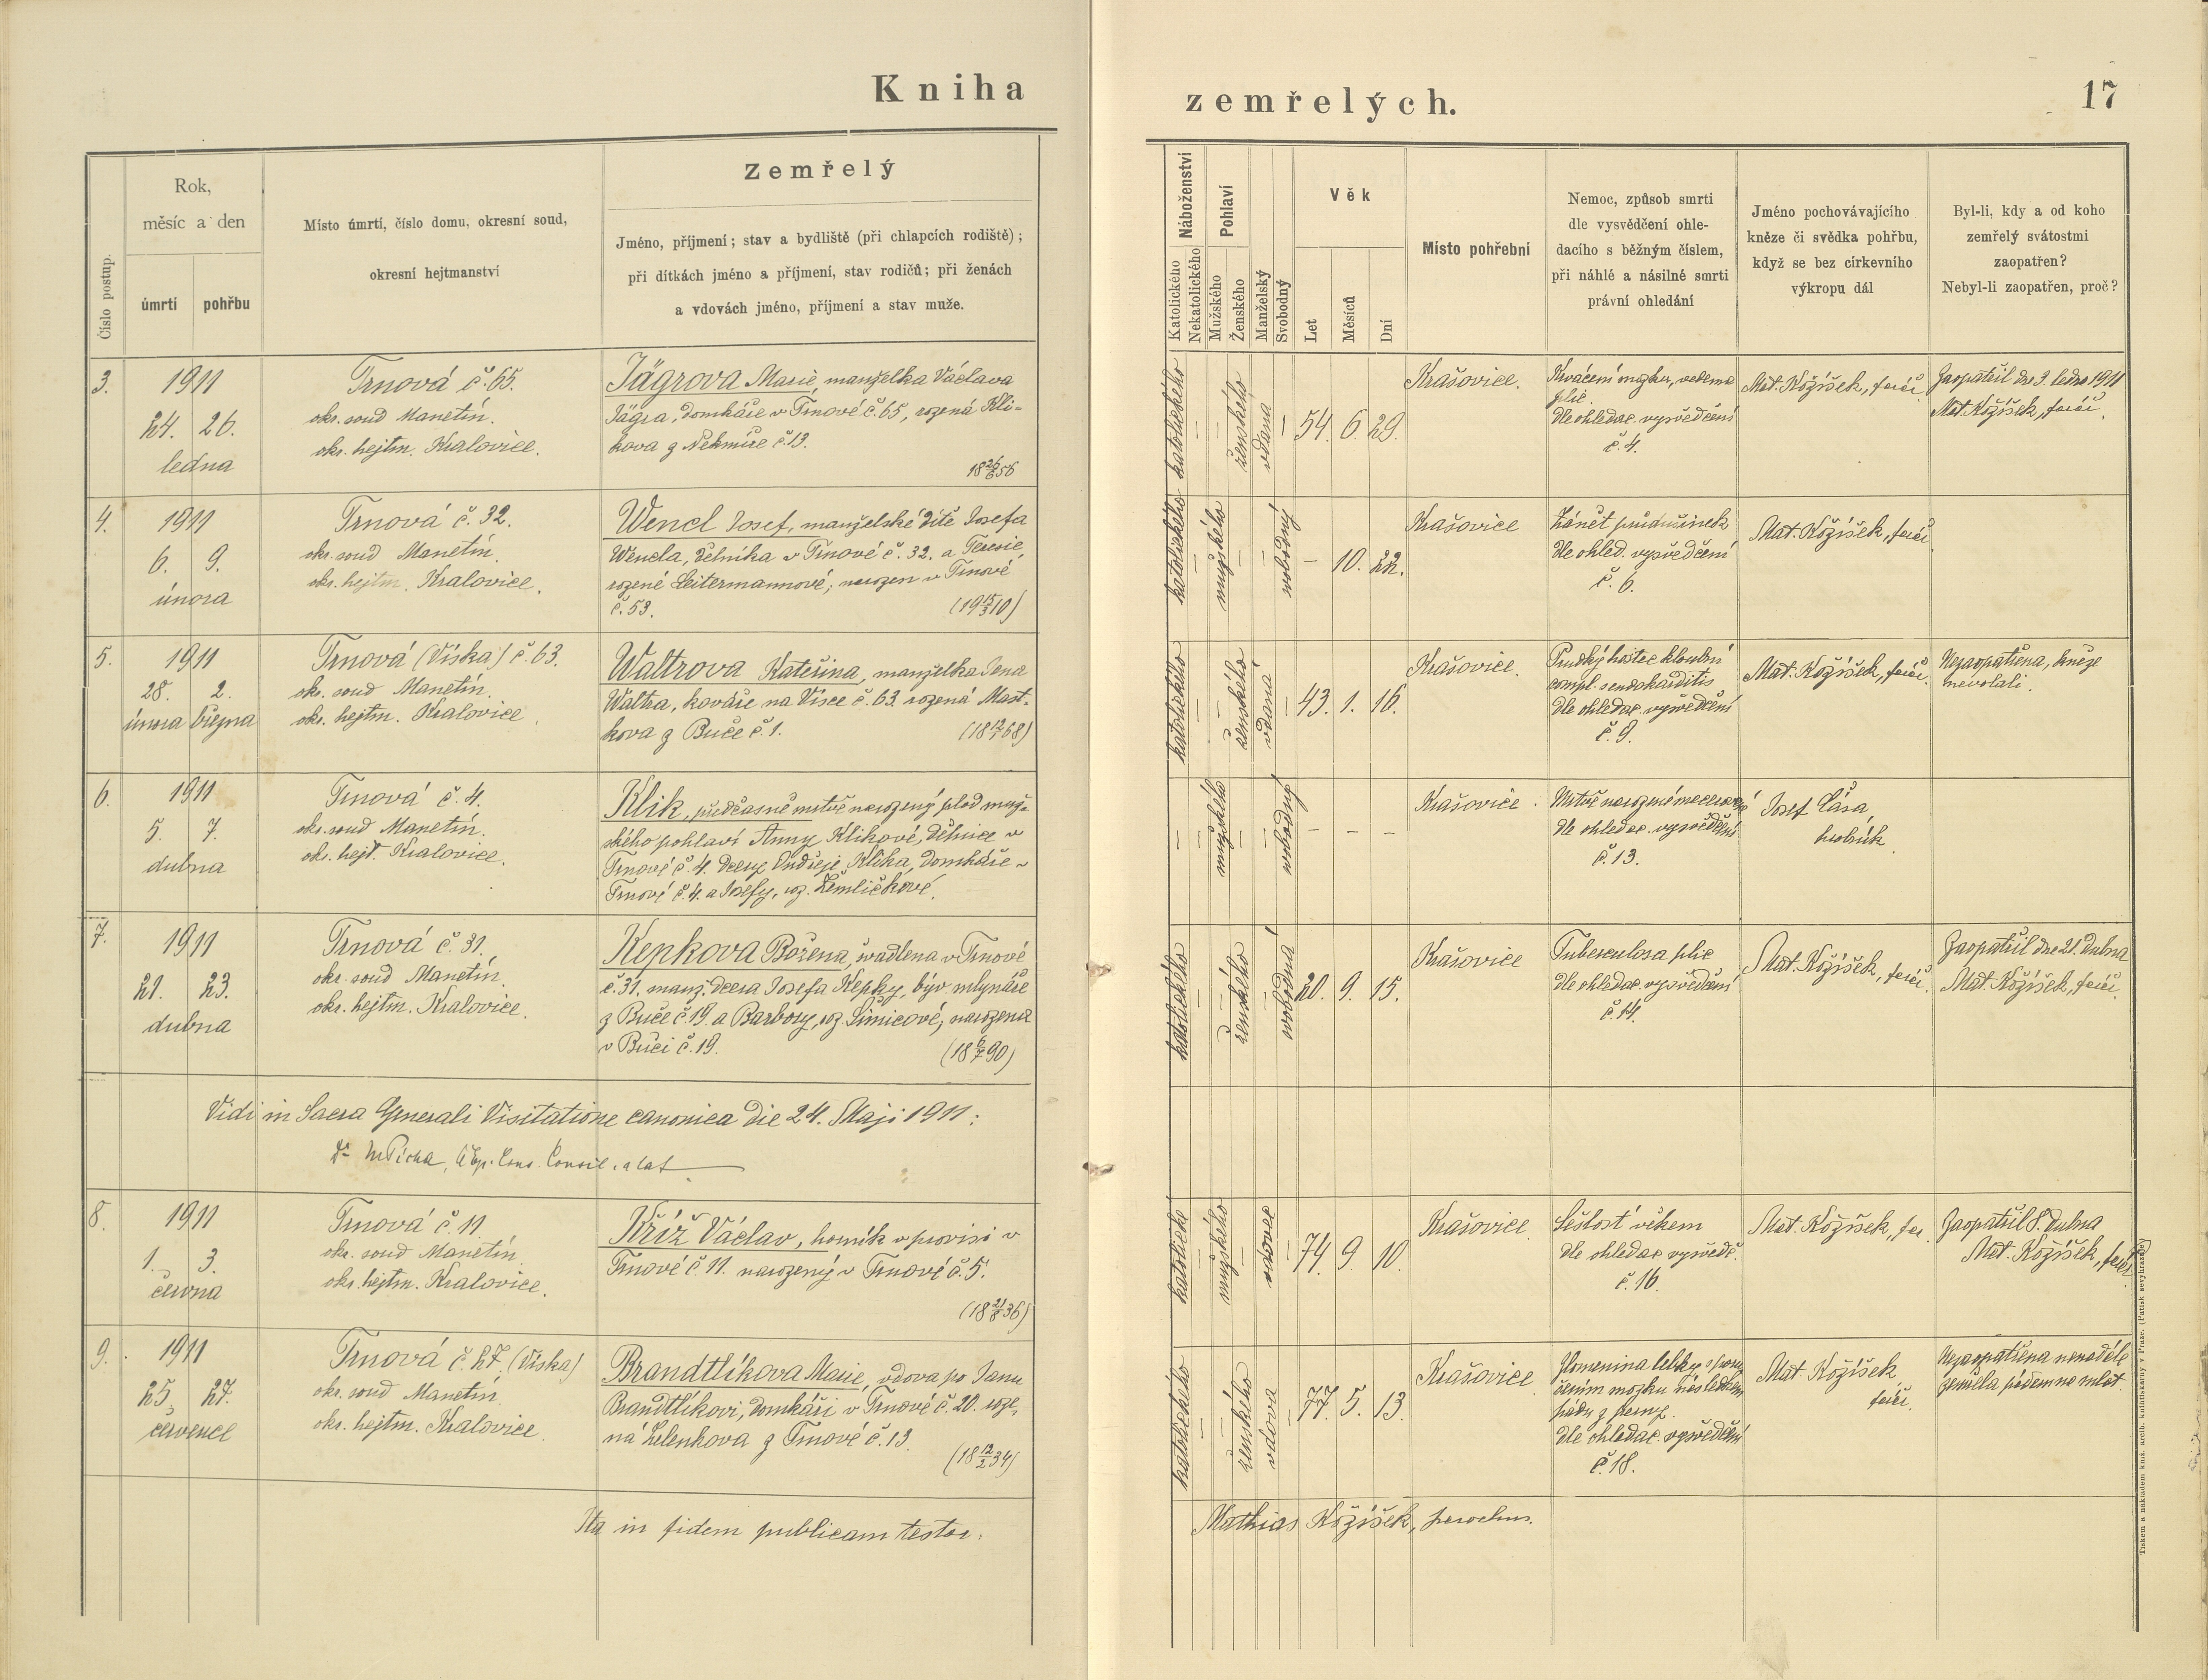 Kniha zemřelých.
17
Číslo postup.
Rok,
měsíc a den
úmrtí
pohřbu
Místo úmrtí, číslo domu, okresní soud,
okresní hejtmanství
Zemřelý
Jméno, příjmení; stav a bydliště (při chlapcích rodiště);
při dítkách jméno a příjmení, stav rodičů; při ženách
a vdovách jméno, příjmení a stav muže.
Náboženství
Katolického
Nekatolického
Pohlaví
Mužského
Ženského
Manželský
Svobodný
Věk
Let
Měsíců
Dní
Místo pohřební
Nemoc, způsob smrti
dle vysvědčení ohle-
dacího s běžným číslem,
při náhlé a násilné smrti
právní ohledání
Jméno pochovávajícího
kněze či svědka pohřbu,
když se bez církevního
výkropu dál
Byl-li, kdy a od koho
zemřelý svátostmi
zaopatřen?
Nebyl-li zaopatřen, proč?
3.
1911
24. 26.
ledna
Trnová č. 65.
okr. soud Manetín.
okr. hejtm. Kralovice.
Jägrova Marie, manželka Václava
Jägra, domkáře v Trnové č. 65, rozená Kli-
kova z Nekmíře č. 13.
18 26/6 56
katolického
ženského
vdaná
54. 6. 29.
Krašovice.
Krvácení mozku, vodema
plic.
dle ohledac. vysvědčení
č. 4.
Mat. Kožíšek, farář
Zaopatřil dne 3. ledna 1911
Mat. Kožíšek, farář.
4.
1911
6. 9.
února
Trnová č. 32.
okr. soud Manetín.
okr. hejtm. Kralovice.
Wencl Josef, manželské dítě Josefa
Wencla, dělníka v Trnové č. 32. a Terezie,
rozené Leitermannové; narozen v Trnové
č. 53.
(19 15/3 10)
katolického
mužského
svobodný
– 10. 22.
Krašovice
Zánět průdušinek
dle ohled. vysvědčení
č. 6.
Mat. Kožíšek, farář
5.
1911
28. 2.
února března
Trnová (Víska) č. 63.
okr. soud Manetín.
okr. hejtm. Kralovice.
Waltrova Kateřina, manželka Jana
Waltra, kováře na Vísce č. 63. rozená Mast-
kova z Buče č. 1.
(18 12/1 68)
katolického
ženského
vdaná
43. 1. 16.
Krašovice.
Prudký hostec kloubní
compl. endokarditis
dle ohledac. vysvědčení
č. 9.
Mat. Kožíšek, farář.
Nezaopatřena, kněze
nevolali.
6.
1911
5. 7.
dubna
Trnová č. 4.
okr. soud Manetín.
okr. hejt. Kralovice.
Klik, předčasně mrtvě narozený plod muž-
ského pohlaví Anny Klikové, dělnice v
Trnové č. 4. dcery Ondřeje Klika, domkáře v
Trnové č. 4. a Josefy, roz. Žemličkové.
mužského
svobodný
– – –
Krašovice.
Mrtvě narozené macerované
dle ohledac. vysvědčení
č. 13.
Josef Čása,
hrobník.
7.
1911
21. 23.
dubna
Trnová č. 31.
okr. soud Manetín.
okr. hejtm. Kralovice.
Kepkova Božena, švadlena v Trnové
č. 31. manž. dcera Josefa Kepky, býv. mlynáře
z Buče č. 19. a Barbory, roz. Šimicové; narozena
v Buči č. 19.
(18 6/7 90)
katolického
ženského
svobodná
20. 9. 15.
Krašovice
Tuberculosa plic
dle ohledac. vysvědčení
č. 14.
Mat. Kožíšek, farář.
Zaopatřil dne 21. dubna
Mat. Kožíšek, farář.
Vidi in Sacra Generali Visitatione canonica die 24. Maji 1911:
8.
1911
1. 3.
června
Trnová č. 11
okr. soud Manetín
okr. hejtm. Kralovice.
Kříž Václav, horník v provisi v
Trnové č. 11. narozený v Trnové č. 5.
(18 21/8 36)
katolické
mužského
vdovec
74. 9 10.
Krašovice.
Sešlosť věkem
dle ohledac vysvědč.
č. 16.
Mat. Kožíšek, far.
Zaopatřil 8. dubna
Mat. Kožíšek, farář
9.
1911
25. 27.
července
Trnová č. 27. (Víska)
okr. soud Manetín.
okr. hejtm. Kralovice.
Brandtlíkova Marie, vdova po Janu
Brandtlíkovi, domkáři v Trnové č. 20. roze-
ná Zelenkova z Trnové č. 13.
(18 12/2 34)
katolického
ženského
vdova
77. 5. 13.
Krašovice
Zlomenina lebky s poru-
šením mozku následkem
pádu z
dle ohledac. vysvědčení
č. 18.
Mat. Kožíšek
farář.
Nezaopatřena
zemřela pádem na mlat
Ita in fidem publicam testor:
Mathias Kožíšek, parochus.